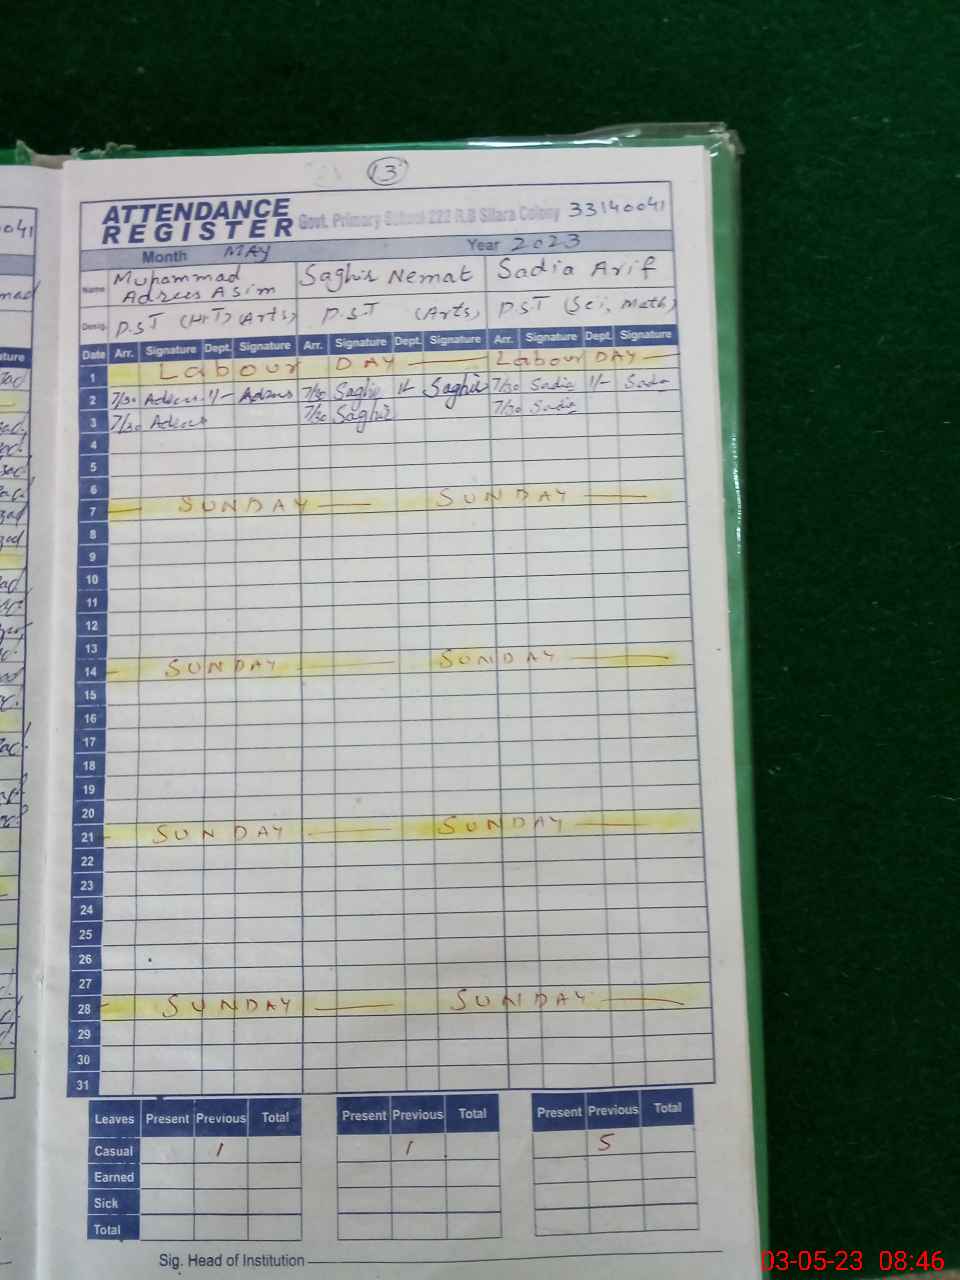 13
ATTENDANCE REGISTER Govt. Primary School 222 R.B Sitara Colony 33140041
Month MAY Year 2023
Name Muhammad Adrees Asim Saghir Nemat Sadia Arif
Desig. P.S.T (HT) (Arts) P.S.T (Arts) P.S.T (Sci, Math)
Date Arr. Signature Dept. Signature Arr. Signature Dept. Signature Arr. Signature Dept. Signature
1 Labour DAY Labour DAY
2 7/30 Adrees 1/- Adrees 7/30 Saghir 1/- Saghir 7/30 Sadia 1/- Sadia
3 7/30 Adrees 7/30 Saghir 7/30 Sadia
4
5
6
7 SUNDAY SUNDAY
8
9
10
11
12
13
14 SUNDAY SUNDAY
15
16
17
18
19
20
21 SUNDAY SUNDAY
22
23
24
25
26
27
28 SUNDAY SUNDAY
29
30
31
Leaves Present Previous Total Present Previous Total Present Previous Total
Casual 1 1 5
Earned
Sick
Total
Sig. Head of Institution
03-05-23 08:46